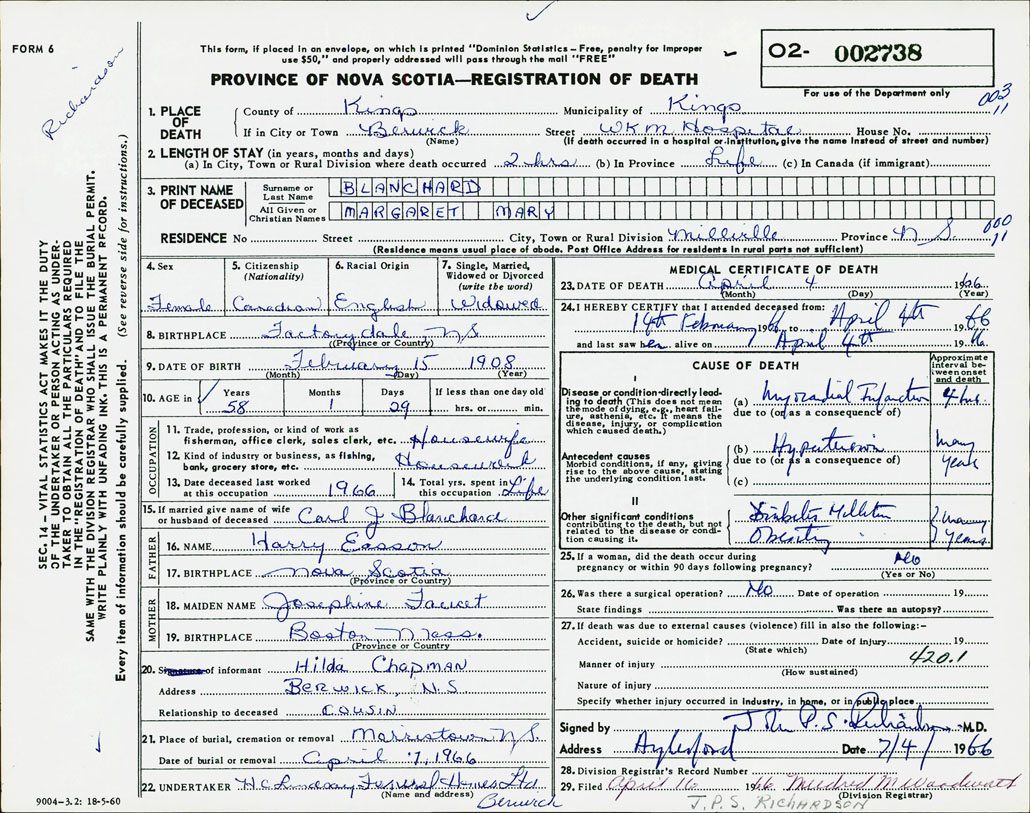 FORM 6
Richardson
This form, if placed in an envelope, on which is printed "Dominion Statistics – Free, penalty for improper
use $50," and properly addressed will pass through the mail "FREE"
PROVINCE OF NOVA SCOTIA—REGISTRATION OF DEATH
O2- 002738
For use of the Department only
003
11
SEC. 14 – VITAL STATISTICS ACT MAKES IT THE DUTY
OF THE UNDERTAKER OR PERSON ACTING AS UNDER-
TAKER TO OBTAIN ALL THE PARTICULARS REQUIRED
IN THE "REGISTRATION OF DEATH" AND TO FILE THE
SAME WITH THE DIVISION REGISTRAR WHO SHALL ISSUE THE BURIAL PERMIT.
WRITE PLAINLY WITH UNFADING INK. THIS IS A PERMANENT RECORD.
Every item of information should be carefully supplied. (See reverse side for instructions.)
1. PLACE OF DEATH
County of Kings Municipality of Kings
If in City or Town Berwick Street WKM Hospital House No.
(Name) (If death occurred in a hospital or institution, give the name instead of street and number)
2. LENGTH OF STAY (in years, months and days)
(a) In City, Town or Rural Division where death occurred 2 hrs (b) In Province Life (c) In Canada (if immigrant)
3. PRINT NAME OF DECEASED
Surname or Last Name BLANCHARD
All Given or Christian Names MARGARET MARY
RESIDENCE No Street City, Town or Rural Division Millville Province N.S.
000
11
(Residence means usual place of abode. Post Office Address for residents in rural parts not sufficient)
4. Sex Female
5. Citizenship (Nationality) Canadian
6. Racial Origin English
7. Single, Married, Widowed or Divorced (write the word) Widowed
8. BIRTHPLACE Factorydale N.S.
(Province or Country)
9. DATE OF BIRTH February 15 1908
(Month) (Day) (Year)
10. AGE in Years 58 Months 1 Days 29 If less than one day old hrs. or min.
OCCUPATION
11. Trade, profession, or kind of work as
fisherman, office clerk, sales clerk, etc. Housewife
12. Kind of industry or business, as fishing,
bank, grocery store, etc. Housework
13. Date deceased last worked at this occupation 1966
14. Total yrs. spent in this occupation Life
15. If married give name of wife
or husband of deceased Carl J Blanchard
FATHER
16. NAME Harry Easson
17. BIRTHPLACE Nova Scotia
(Province or Country)
MOTHER
18. MAIDEN NAME Josephine
19. BIRTHPLACE Boston Mass.
(Province or Country)
20. Signature of informant Hilda Chapman
Address Berwick, N.S
Relationship to deceased Cousin
21. Place of burial, cremation or removal Morristown N.S.
Date of burial or removal April 7, 1966
22. UNDERTAKER Funeral Homes Ltd
(Name and address) Berwick
9004-3.2: 18-5-60
MEDICAL CERTIFICATE OF DEATH
23. DATE OF DEATH April 4 1966
(Month) (Day) (Year)
24. I HEREBY CERTIFY that I attended deceased from:
14th February 1966 to April 4th 1966
and last saw her alive on April 4th 1966
CAUSE OF DEATH
Approximate interval between onset and death
I
Disease or condition directly lead-
ing to death (This does not mean
the mode of dying, e.g., heart fail-
ure, asthenia, etc. It means the
disease, injury, or complication
which caused death.)
(a) Myocardial Infarction 4 hrs.
due to (or as a consequence of)
Antecedent causes
Morbid conditions, if any, giving
rise to the above cause, stating
the underlying condition last.
(b) Hypertension many years
due to (or as a consequence of)
(c)
II
Other significant conditions
contributing to the death, but not
related to the disease or condi-
tion causing it.
Diabetes Mellitus
Obesity
many years
25. If a woman, did the death occur during
pregnancy or within 90 days following pregnancy? No
(Yes or No)
26. Was there a surgical operation? No Date of operation 19
State findings Was there an autopsy?
27. If death was due to external causes (violence) fill in also the following:–
Accident, suicide or homicide? Date of injury 19
(State which)
420.1
Manner of injury
(How sustained)
Nature of injury
Specify whether injury occurred in industry, in home, or in public place
Signed by John P.S. Richardson M.D.
Address Aylesford Date 7/4/ 1966
28. Division Registrar's Record Number
29. Filed April 16 1966 Mildred M Woodworth
(Division Registrar)
J.P.S. RICHARDSON